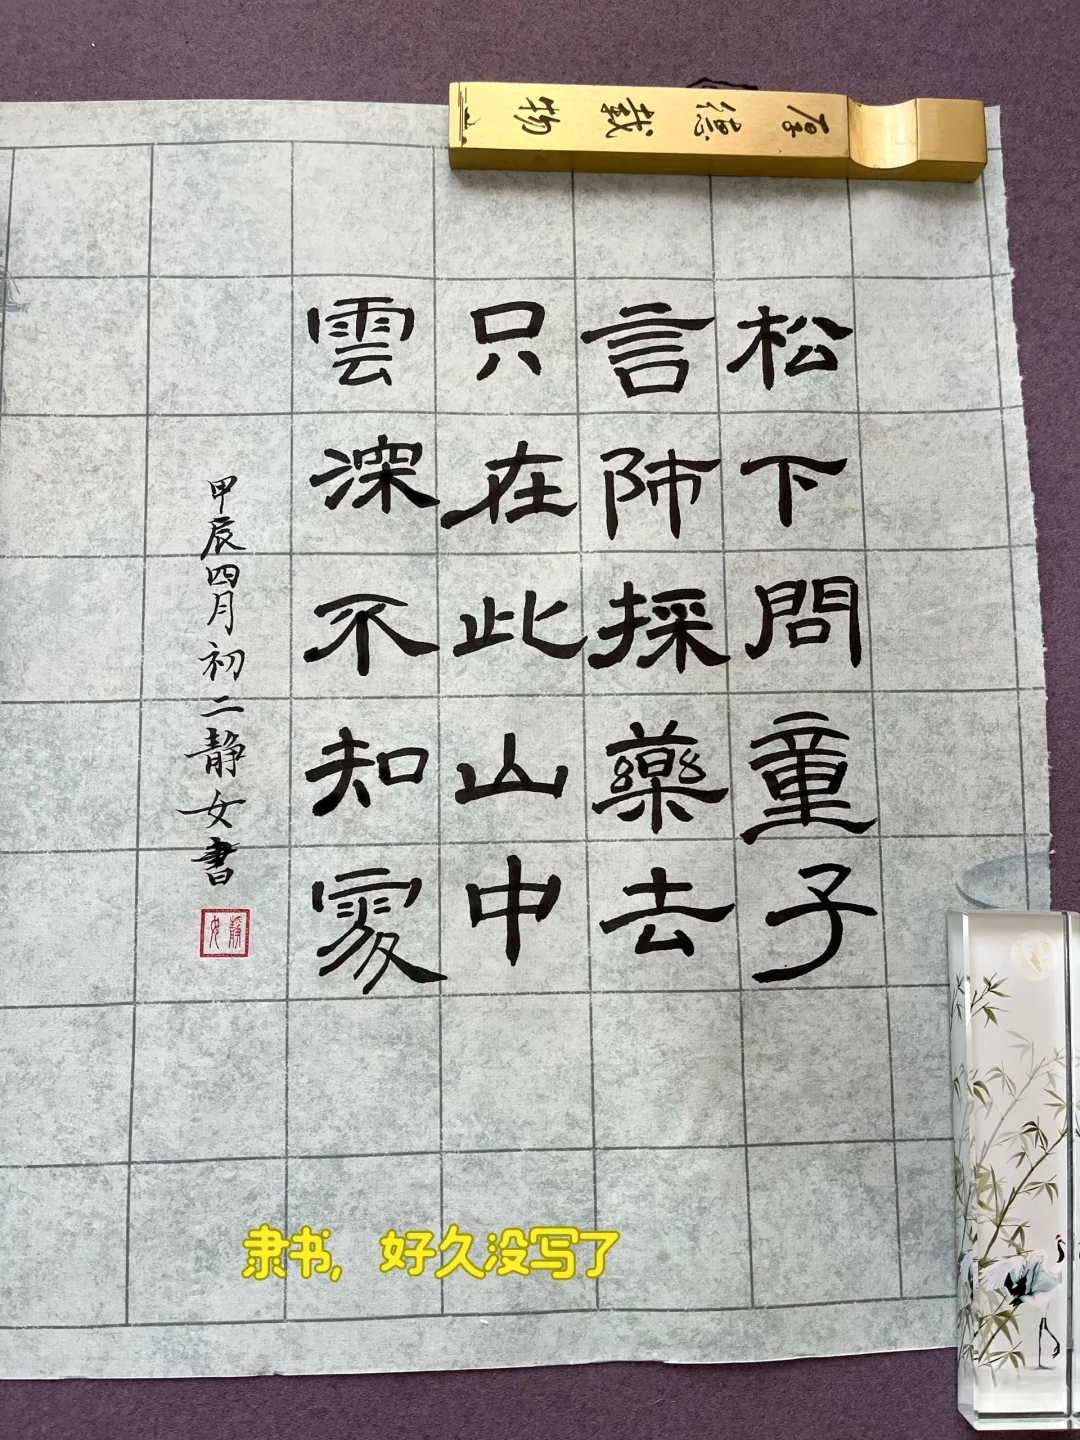 厚德载物
松下問童子
言師採藥去
只在此山中
雲深不知處
甲辰四月初二静女書
靜女
隶书，好久没写了